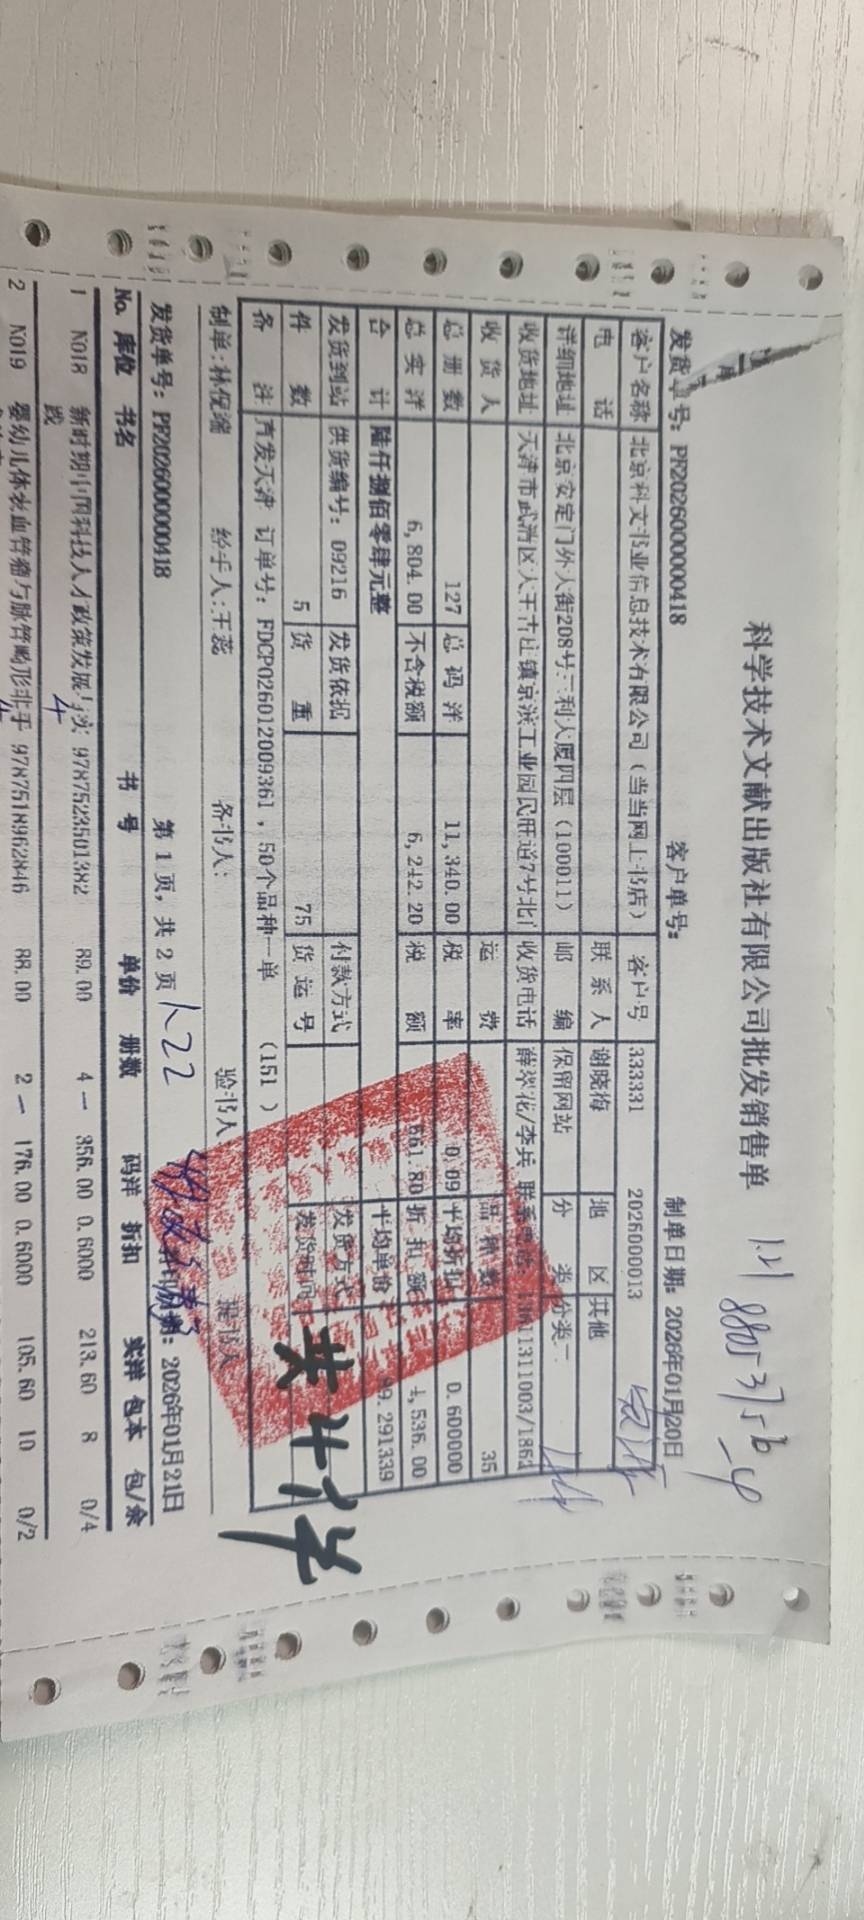 科学技术文献出版社有限公司批发销售单
1.21 8805375b
发货单号: PF2026000000418 客户单号: 制单日期: 2026年01月20日
客户名称 北京科文书业信息技术有限公司（当当网上书店） 客户号 333331 2026000013
电 话 联系人 谢晓梅 地 区 其他
详细地址 北京安定门外大街208号三利大厦四层（100011） 邮 编 保留网站 分 类 分类二
收货地址 天津市武清区大王古庄镇京滨工业园民旺道7号北门 收货电话 薛翠花/李兵 联系电话 13611311003/1862
收货人 运 费 品种数 35
总册数 127 总码洋 11,340.00 税 率 0.09 平均折扣 0.600000
总实洋 6,804.00 不含税额 6,242.20 税 额 561.80 折扣额 4,536.00
合 计 陆仟捌佰零肆元整 平均单价 89.291339
发货到站 供货编号: 09216 发货依据 付款方式 发货方式
件 数 5 货 重 75 货运号 发货时间
备 注 直发天津 订单号: FDCP026012009361，50个品种一单 （151 ）
共4件
制单:林倪端 经手人:王蕊 备书人: 验书人 提书人
发货单号: PF2026000000418 第 1 页, 共 2 页 1.22 打印日期: 2026年01月21日
No. 库位 书名 书 号 单价 册数 码洋 折扣 实洋 包本 包/余
1 N018 新时期中国科技人才政策发展与实 9787523501382 89.00 4 一 356.00 0.6000 213.60 8 0/4
践 4
2 N019 婴幼儿体表血管瘤与脉管畸形非手 9787518962846 88.00 2 一 176.00 0.6000 105.60 10 0/2